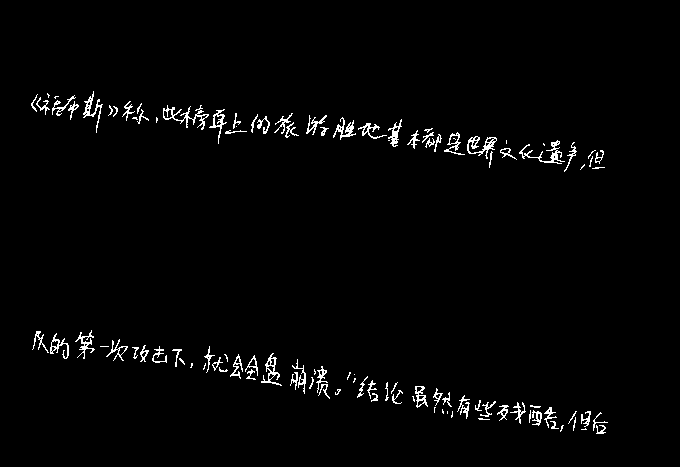 《福布斯》称,此榜单上的旅游胜地基本都是世界文化遗产,但
队的第一次攻击下,就会全盘崩溃。"结论虽然有些残酷,但后